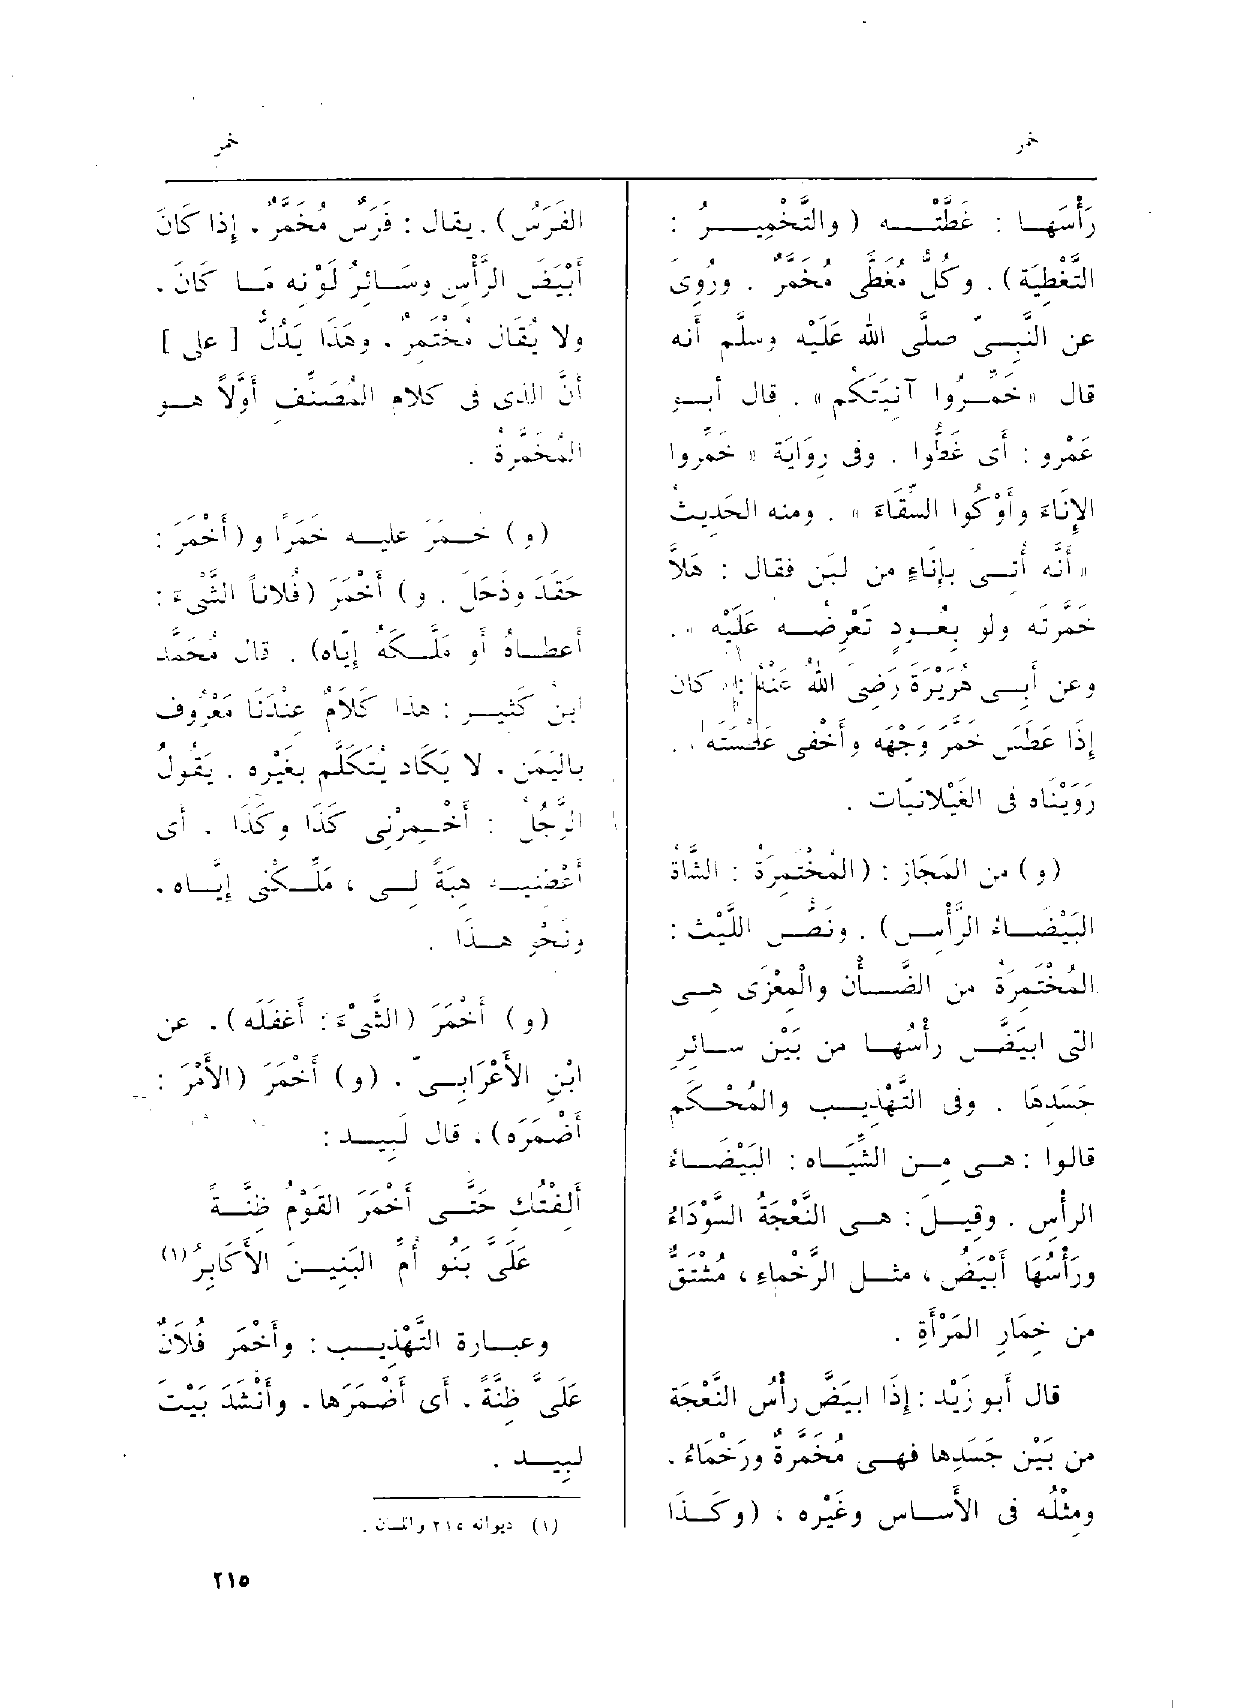 خمر
خمر
رَأْسَها : غَطَّتْه ( والتَّخْمِيرُ :
التَّغْطِيَة ) . وكلُّ مُغَطًّى مُخَمَّرٌ . ورُوِىَ
عن النَّبِىّ صلَّى الله عَلَيْه وسلَّم أَنه
قال « خَمِّرُوا آنِيَتَكم » . قال أَبو
عَمْرو : أَى غَطُّوا . وفى رِوَايَة « خَمِّروا
الإِنَاءَ وأَوْكُوا السِّقَاءَ » . ومنه الحَدِيثُ
« أَنَّه أُتِىَ بإِنَاءٍ من لَبَن فقال : هَلاَّ
خَمَّرتَه ولو بِعُودٍ تَعْرِضُه عَلَيْه » .
وعن أَبِى هُرَيْرَةَ رَضِىَ اللهُ عَنْه : « كان
إِذَا عَطَس خَمَّرَ وَجْهَه وأَخْفى عَطْسَتَه » .
رَوَيْنَاه فى الغَيْلانِيَّات .
(و) من المَجَاز : (المُخْتَمِرَةُ : الشَّاةُ
البَيْضَاءُ الرَّأْسِ) . ونَصُّ اللَّيْث :
المُخْتَمِرَةُ من الضَّأْن والْمِعْزَى هى
التى ابيَضَّ رأْسُها من بَيْن سائِرِ
جَسَدِها . وفى التَّهْذِيب والمُحْكَم
قالوا : هى من الشِّيَاه : البَيْضَاءُ
الرأْسِ . وقيل : هى النَّعْجَةُ السَّوْدَاءُ
ورَأْسُهَا أَبْيَضُ ، مثل الرَّخْمَاءِ ، مُشْتَقٌّ
من خِمَارِ المَرْأَةِ .
قال أَبو زَيْد : إِذَا ابيَضَّ رأْسُ النَّعْجَة
من بَيْن جَسَدِها فهى مُخَمَّرَةٌ ورَخْمَاءُ .
ومثْلُه فى الأَساس وغَيْرِه ، (وكَذَا
الفَرَسُ) . يقال : فَرَسٌ مُخَمَّرٌ . إِذا كَانَ
أَبْيَضَ الرَّأْسِ وسَائِرُ لَوْنِه مَا كَانَ .
ولا يُقَال مُخْتَمِرٌ . وهَذَا يَدُلُّ [ على ]
أَنَّ الذى فى كلام المُصَنِّف أَوَّلاً هو
المُخَمَّرَةُ .
(و) خَمِرَ عليه خَمَرًا و(أَخْمَرَ :
حَقَدَ وذَحَلَ . و) أَخْمَرَ (فُلاناً الشَّىءَ :
أَعطاهُ أَو مَلَّكَهُ إِيّاه) . قال مُحَمَّد
ابن كَثِير : هذا كَلامٌ عِنْدَنَا مَعْرُوف
باليَمَن . لا يَكَاد يُتَكَلَّم بغَيْرِه . يَقُولُ
الرَّجُلُ : أَخْمِرْنِى كَذَا وكَذَا . أَى
أَعْطِنِيه هِبَةً لِى ، مَلِّكْنِى إِيَّاه .
ونَحْو هذَا .
(و) أَخْمَرَ (الشَّىْءَ : أَغفَلَه) . عن
ابْنِ الأَعْرَابِىّ . (و) أَخْمَرَ (الأَمْرَ :
أَضْمَرَه) . قال لَبِيد :
أَلِفْتُك حَتَّى أَخْمَرَ القَوْمُ ظِنَّةً
عَلَىَّ بَنُو أُمِّ البَنِينَ الأَكَابِرُ(١)
وعبارة التَّهْذِيب : وأَخْمَر فُلاَنٌ
عَلَىَّ ظِنَّةً . أَى أَضْمَرَها . وأَنْشَدَ بَيْتَ
لبِيد .
(١) ديوانه ٢١٥ واللسان .
٢١٥